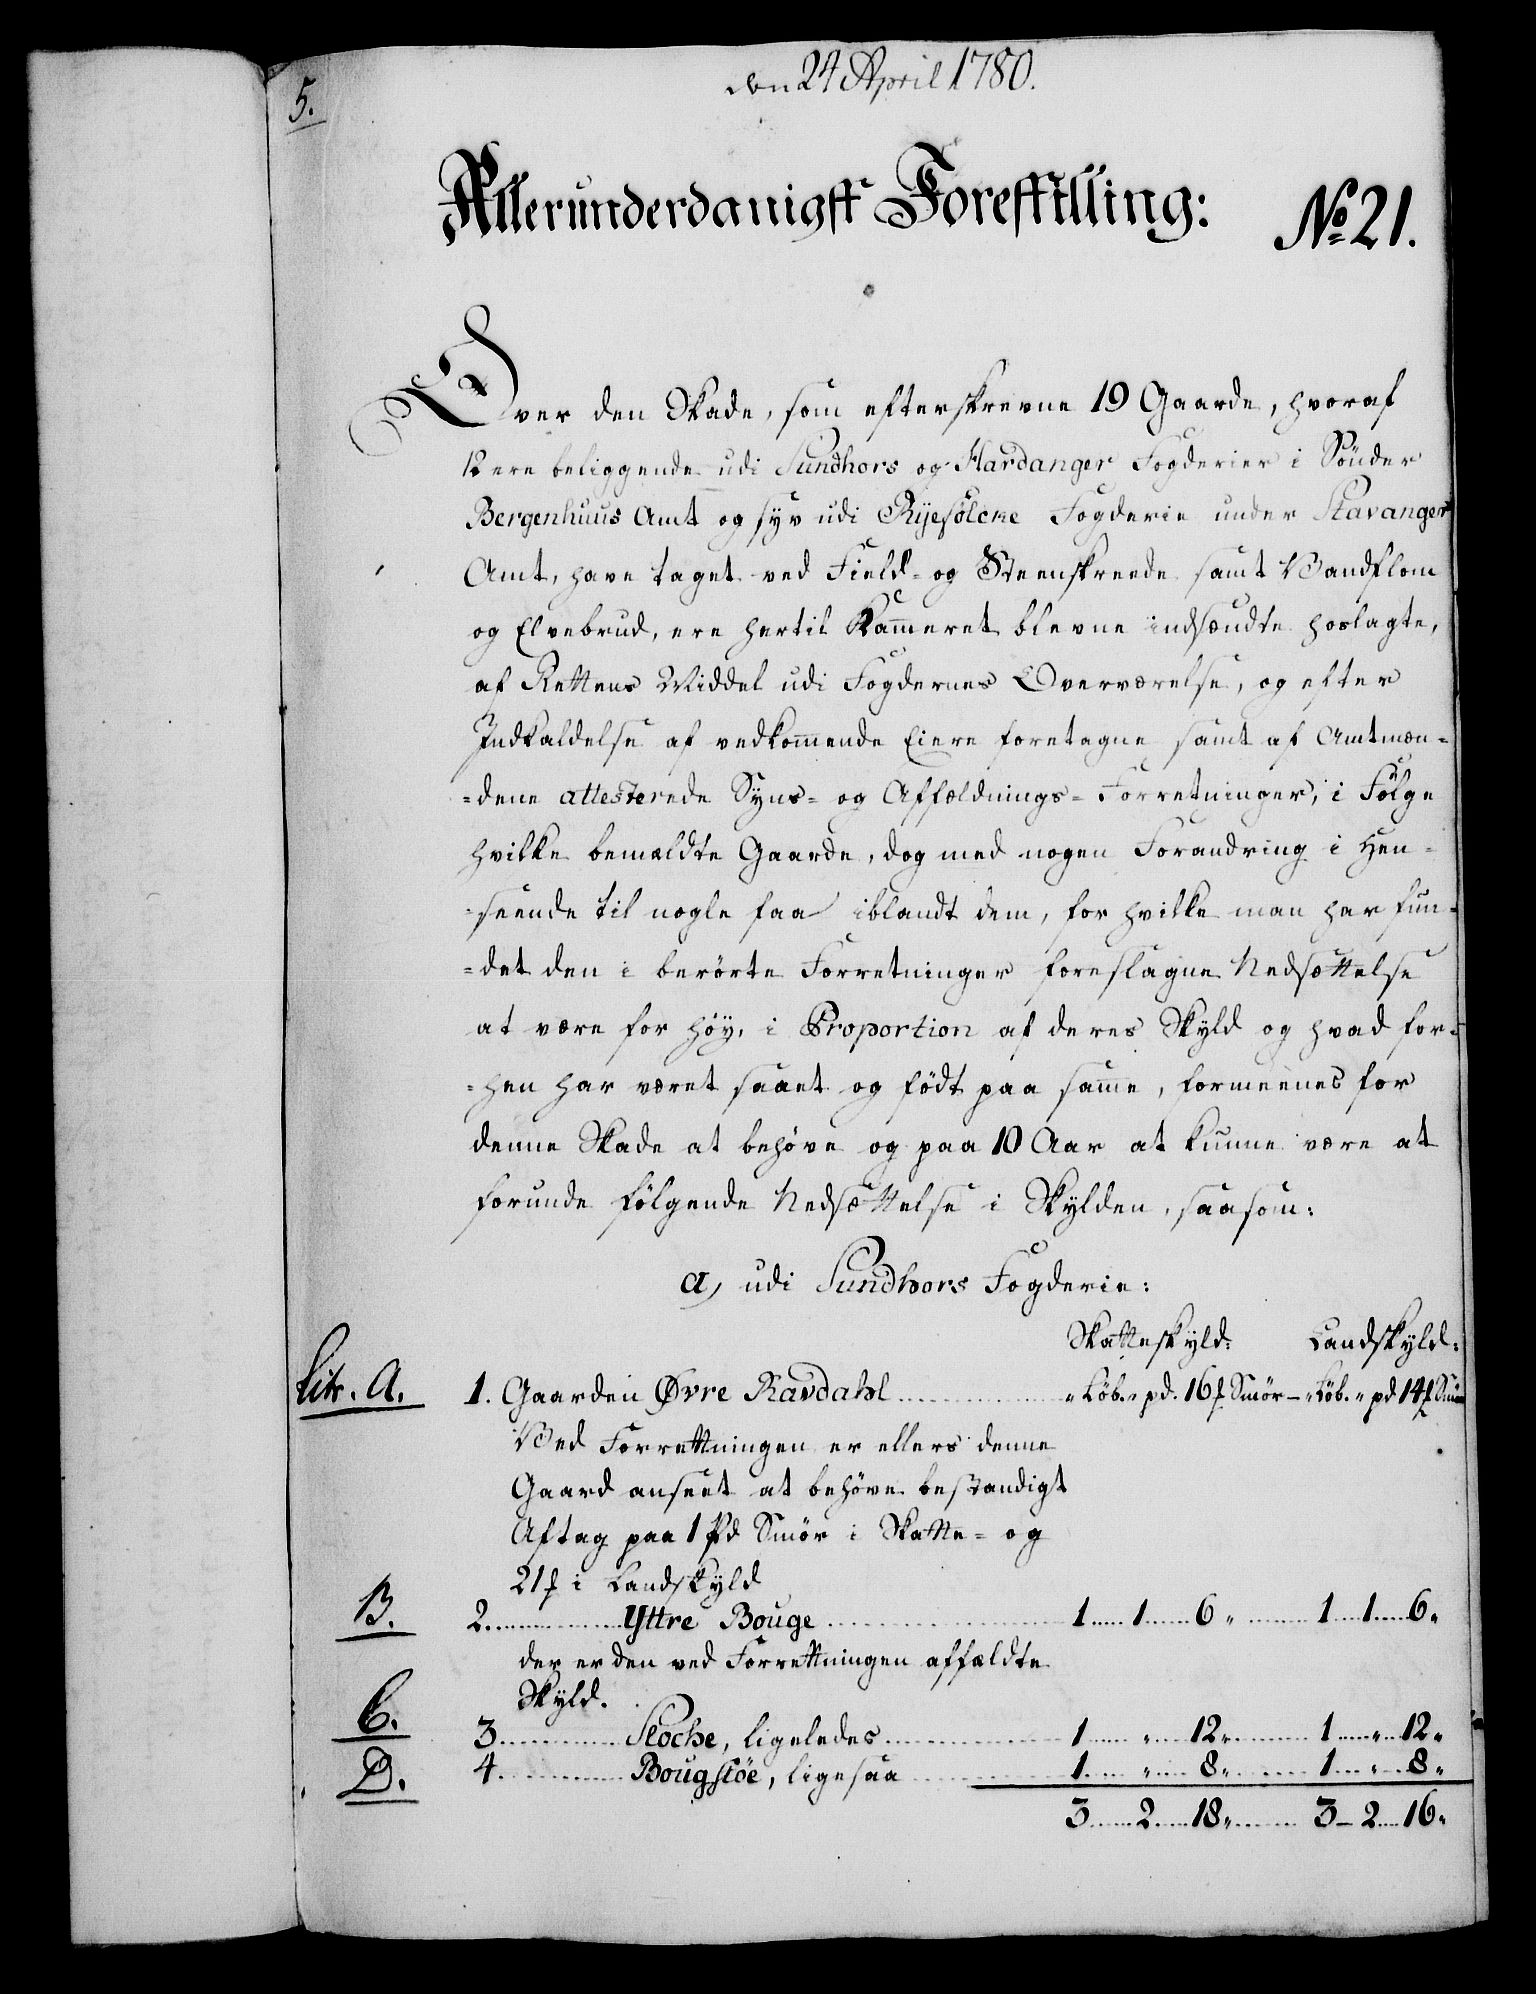 5.
den 24 April 1780.
Allerunderdanigst Forestilling:
No 21.
Over den Skade, som efterskrevne 19 Gaarde, hvoraf
12 ere beliggende udi Sundhors og Hardanger Fogderier i Sönder
Bergenhuus Amt og syv udi Ryefölcke Fogderie under Stavanger
Amt, have taget ved Field- og Steenskreede samt Vandflom
og Elvebrud, ere hertil Kam̅eret blevne indsendte hoslagte,
af Rettens Middel udi Fogdernes Overværelse, og efter
Indkaldelse af vedkom̅ende Eiere foretagne samt af Amtmæn-
-dene attesterede Syns- og Affældnings-Forretninger, i Fölge
hvilke bemældte Gaarde, dog med nogen Forandring i Hen-
-seende til nogle faa iblandt dem, for hvilke man har fun-
-det den i berörte Forretninger foreslagne Nedsættelse
at være for höy, i Proportion af deres Skyld og hvad for-
-hen har været saaet og födt paa sam̅e, formeenes for
denne Skade at behöve og paa 10 Aar at kunne være at
forunde fölgende Nedsættelse i Skylden, saasom:
a, udi Sundhors Fogderie:
Skatteskyld: Landskyld:
Litr. A. 1. Gaarden Øvre Ravdahl " Löb. " pd. 16 ℔ Smör – " Löb. " pd 14 ℔ Smör
Ved Forrettningen er ellers denne
Gaard anseet at behöve bestandigt
Aftag paa 1 Pd Smör i Skatte- og
21 ℔ i Landskyld
B. 2. Yttre Bouge 1 1 6 " 1 1 6 "
der er den ved Forrettningen affældte
Skyld.
C. 3. Stoche, ligeledes 1 " 12 " 1 " 12 "
D. 4. Bougstöe, ligesaa 1 " 8 " 1 " 8 "
3 2 18 " 3 – 2 16 "